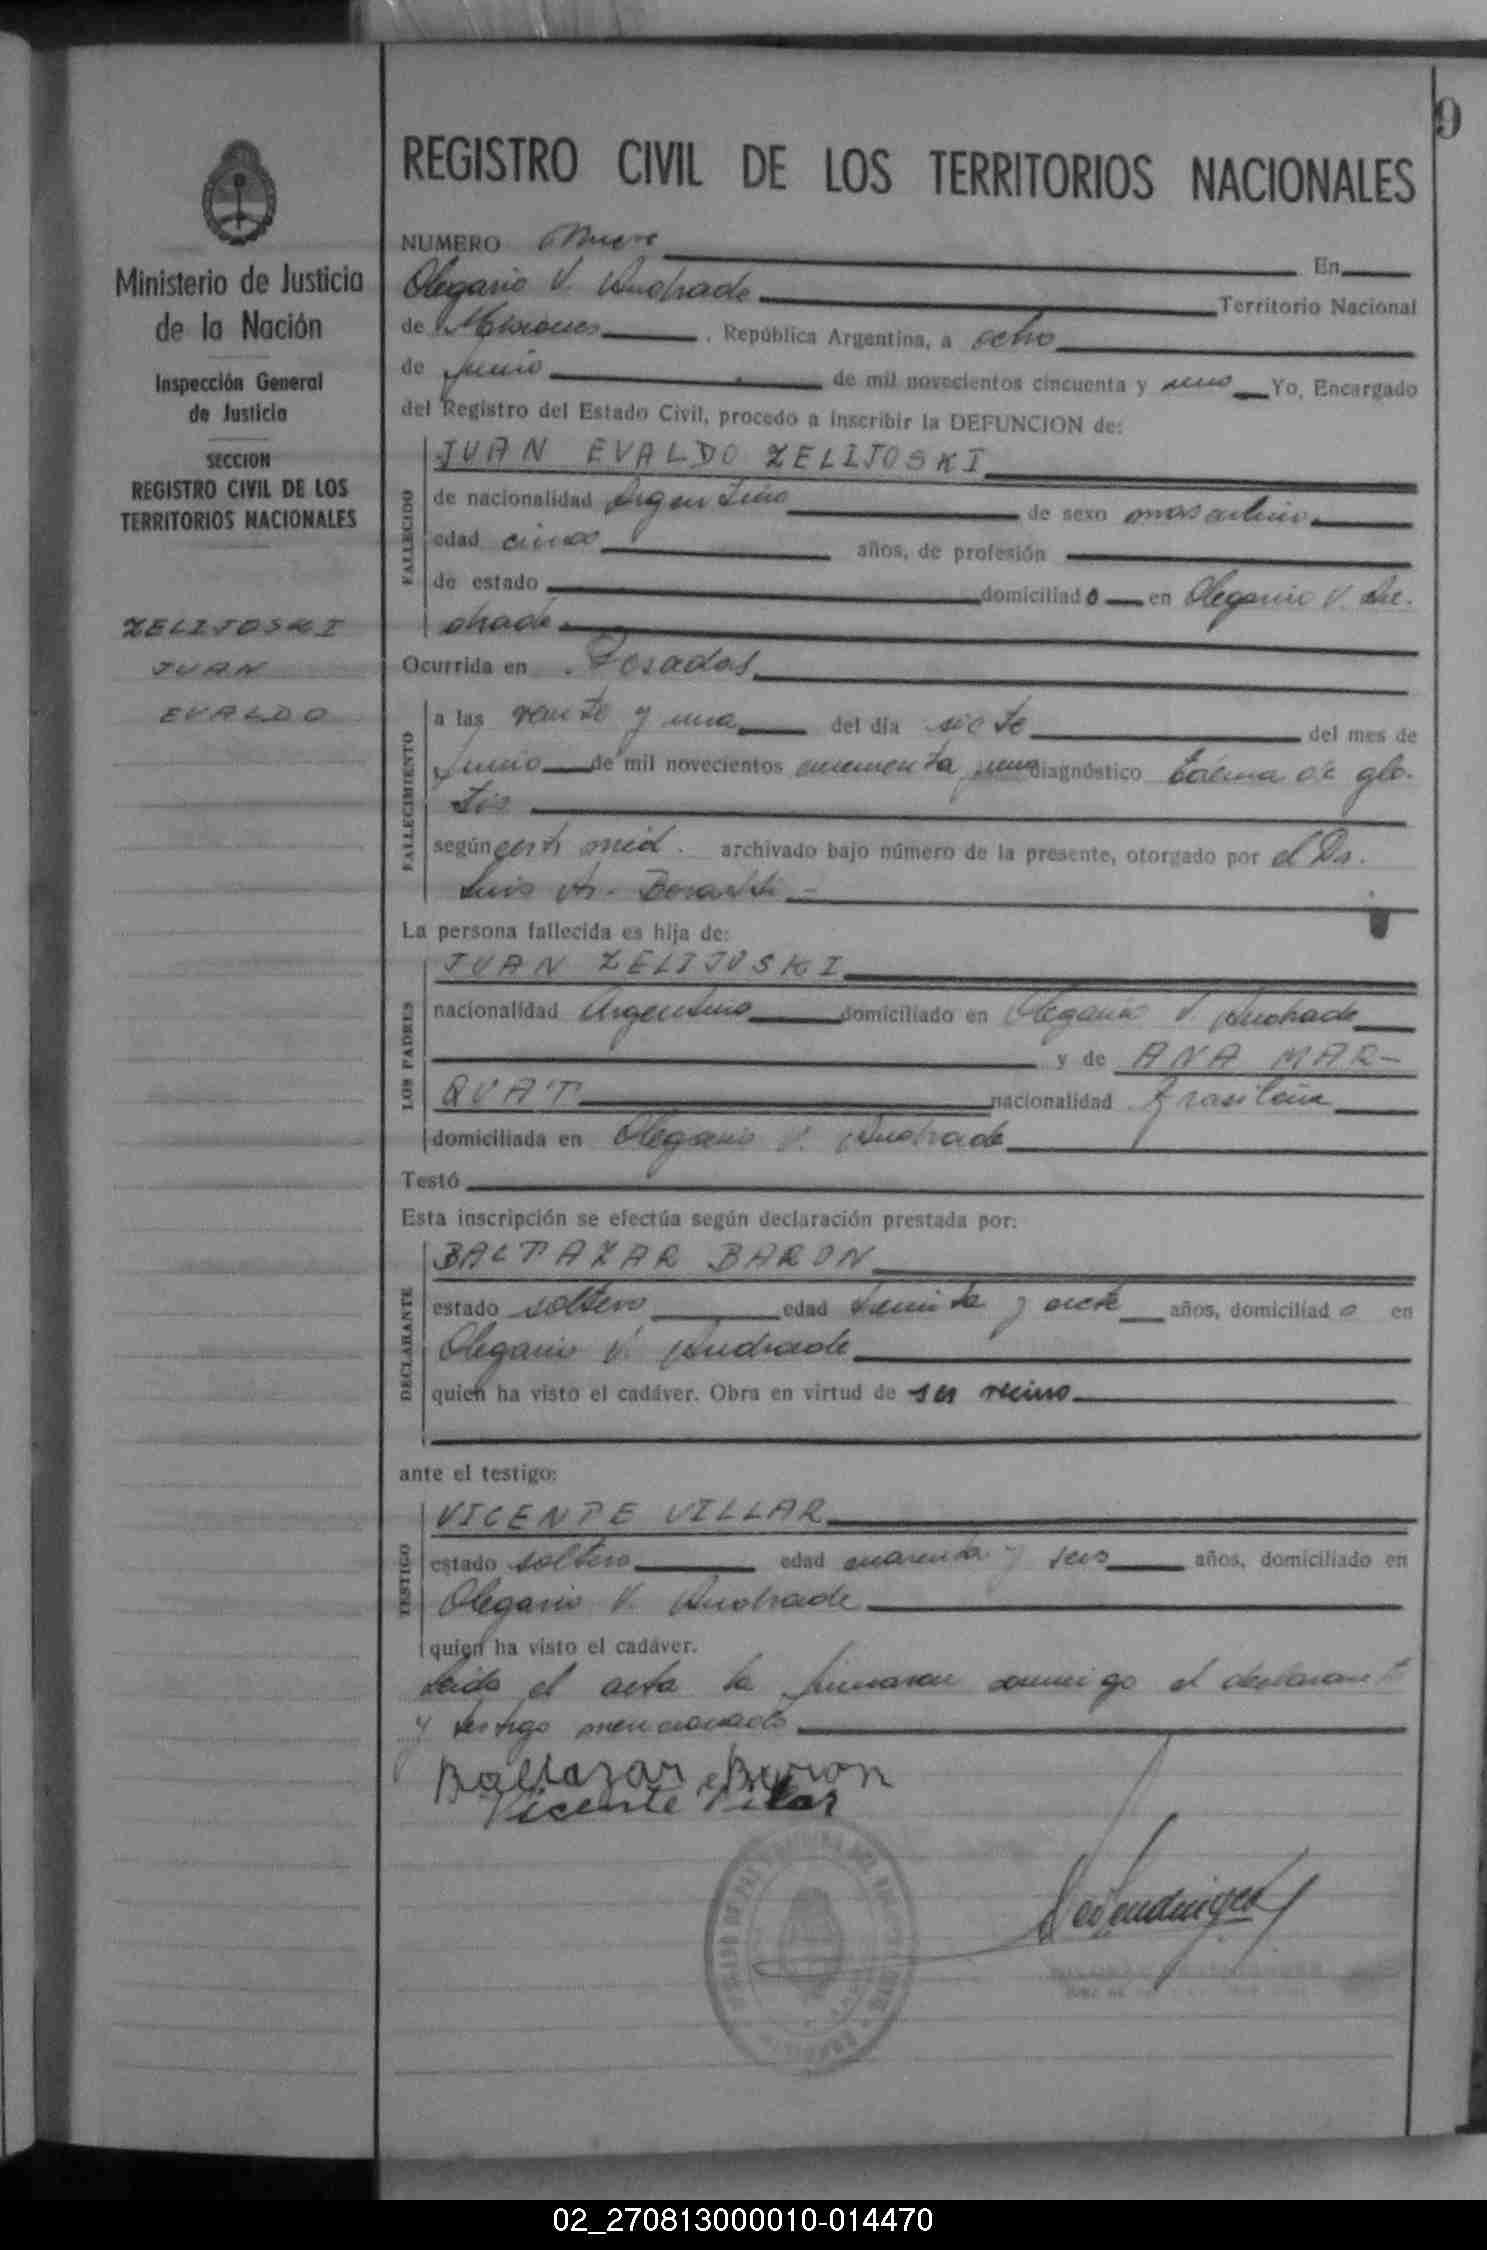 9
REGISTRO CIVIL DE LOS TERRITORIOS NACIONALES
Ministerio de Justicia
de la Nación
Inspección General
de Justicia
SECCION
REGISTRO CIVIL DE LOS
TERRITORIOS NACIONALES
ZELIJOSKI
JUAN
EVALDO
NUMERO Nueve En
Olegario V. Andrade Territorio Nacional
de Misiones , República Argentina, a ocho
de Junio de mil novecientos cincuenta y uno Yo, Encargado
del Registro del Estado Civil, procedo a inscribir la DEFUNCION de:
FALLECIDO
JUAN EVALDO ZELIJOSKI
de nacionalidad Argentino de sexo masculino
edad cinco años, de profesión
de estado domiciliado en Olegario V. An-
drade
Ocurrida en Posadas
FALLECIMIENTO
a las veinte y una del día siete del mes de
Junio de mil novecientos cincuenta y uno diagnóstico Edema de glo-
tis
según certi med. archivado bajo número de la presente, otorgado por el Dr.
Luis A.
La persona fallecida es hija de:
LOS PADRES
JUAN ZELIJOSKI
nacionalidad Argentino domiciliado en Olegario V. Andrade
y de ANA MAR-
QUAT nacionalidad Brasileña
domiciliada en Olegario V. Andrade
Testó
Esta inscripción se efectúa según declaración prestada por:
DECLARANTE
BALTAZAR BARON
estado soltero edad treinta y siete años, domiciliado en
Olegario V. Andrade
quien ha visto el cadáver. Obra en virtud de ser vecino
ante el testigo:
TESTIGO
VICENTE VILLAR
estado soltero edad cuarenta y seis años, domiciliado en
Olegario V. Andrade
quien ha visto el cadáver.
Leida el acta la firmaron conmigo el declarante
y testigo mencionado
Baltazar Baron
Vicente Villar
02_270813000010-014470